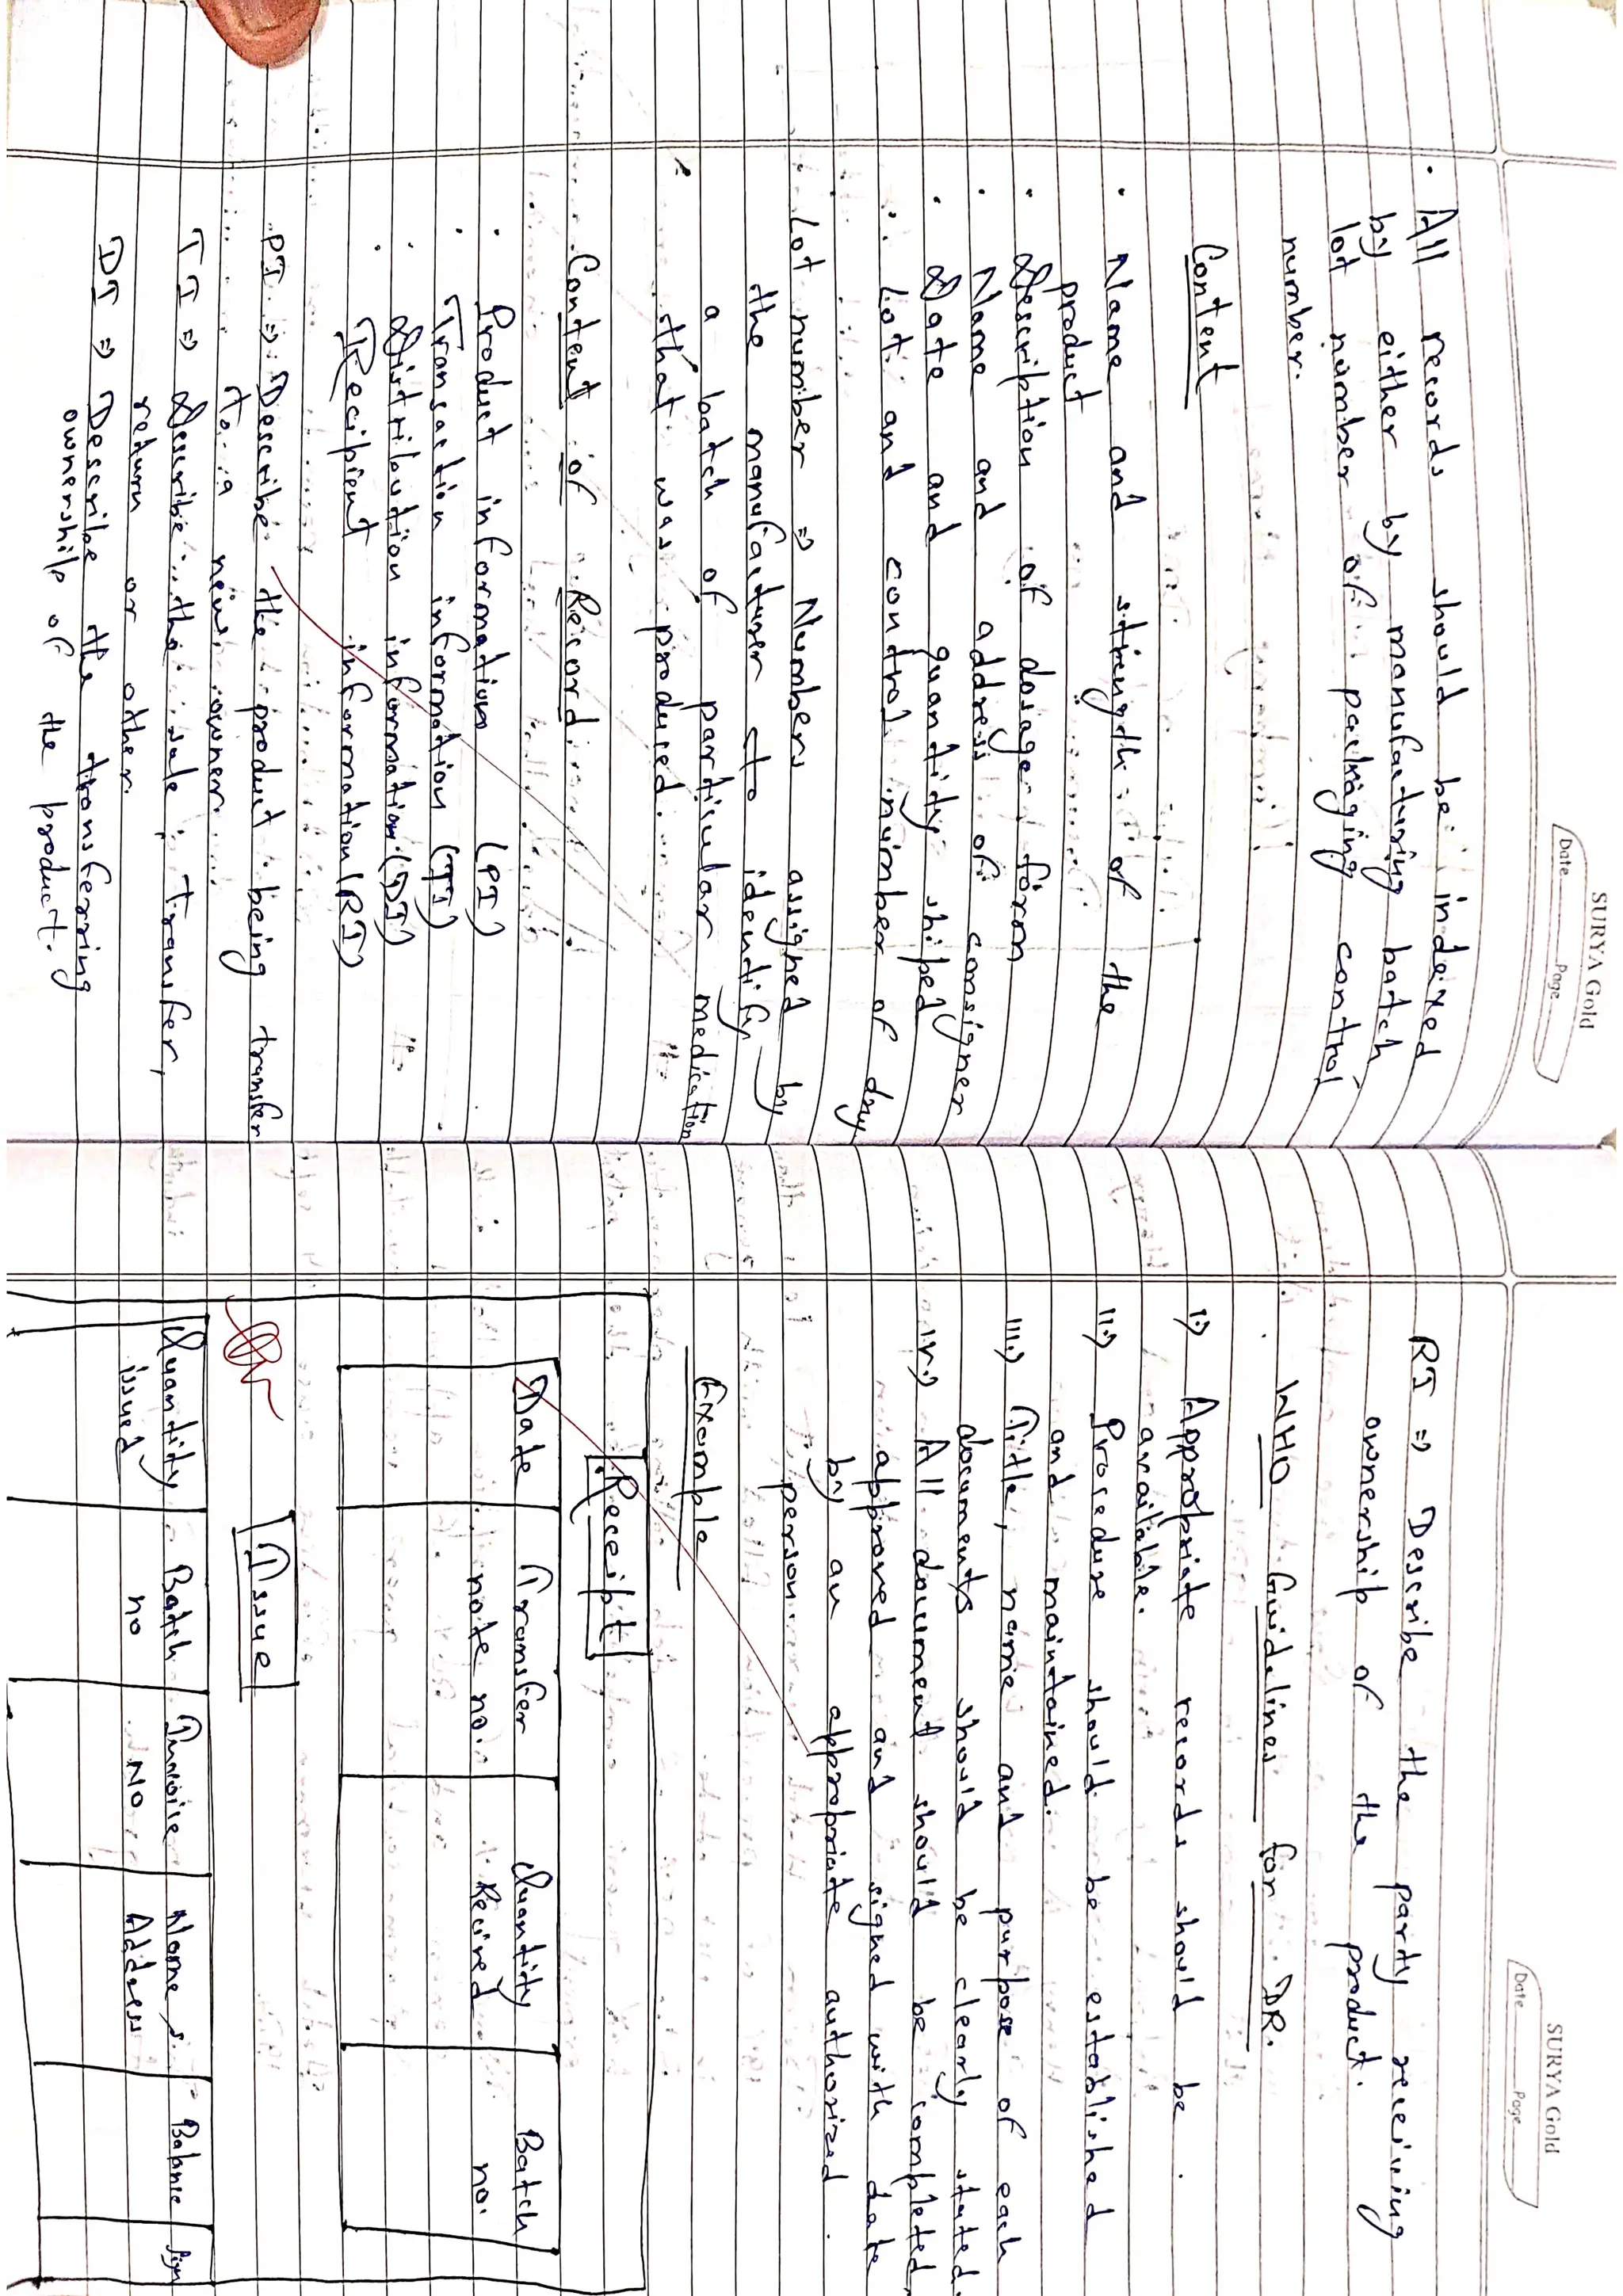 SURYA Gold
Date Page
• All records should be indexed
by either by manufacturing batch,
lot number of packaging control
number.
Content
• Name and strength of the
product
• Description of dosage form
• Name and address of consigner
• Date and quantity shiped
• Lot and control number of dry
Lot number ⇒ Numbers assigned by
the manufacturer to identify
a batch of particular medication
that was produced.
Content of Record
• Product information (PI)
• Transaction information (TI)
• Distribution information (DI)
• Recipient information (RI)
PI ⇒ Describe the product being transfer
to a new owner.
TI ⇒ Describe the sale, transfer,
return or other.
DI ⇒ Describe the transferring
ownership of the product.
SURYA Gold
Date Page
RI ⇒ Describe the party receiving
ownership of the product.
WHO Guidelines for DR.
i) Appropriate records should be
available.
ii) Procedure should be established
and maintained.
iii) Title, name and purpose of each
documents should be clearly stated.
iv) All document should be completed,
approved and signed with date
by an appropriate authorized
person.
Example
Receipt
Date Transfer Quantity Batch
note no. Recived no.
Issue
Quantity Batch Invoice Name & Balance Sign
issued no No Address